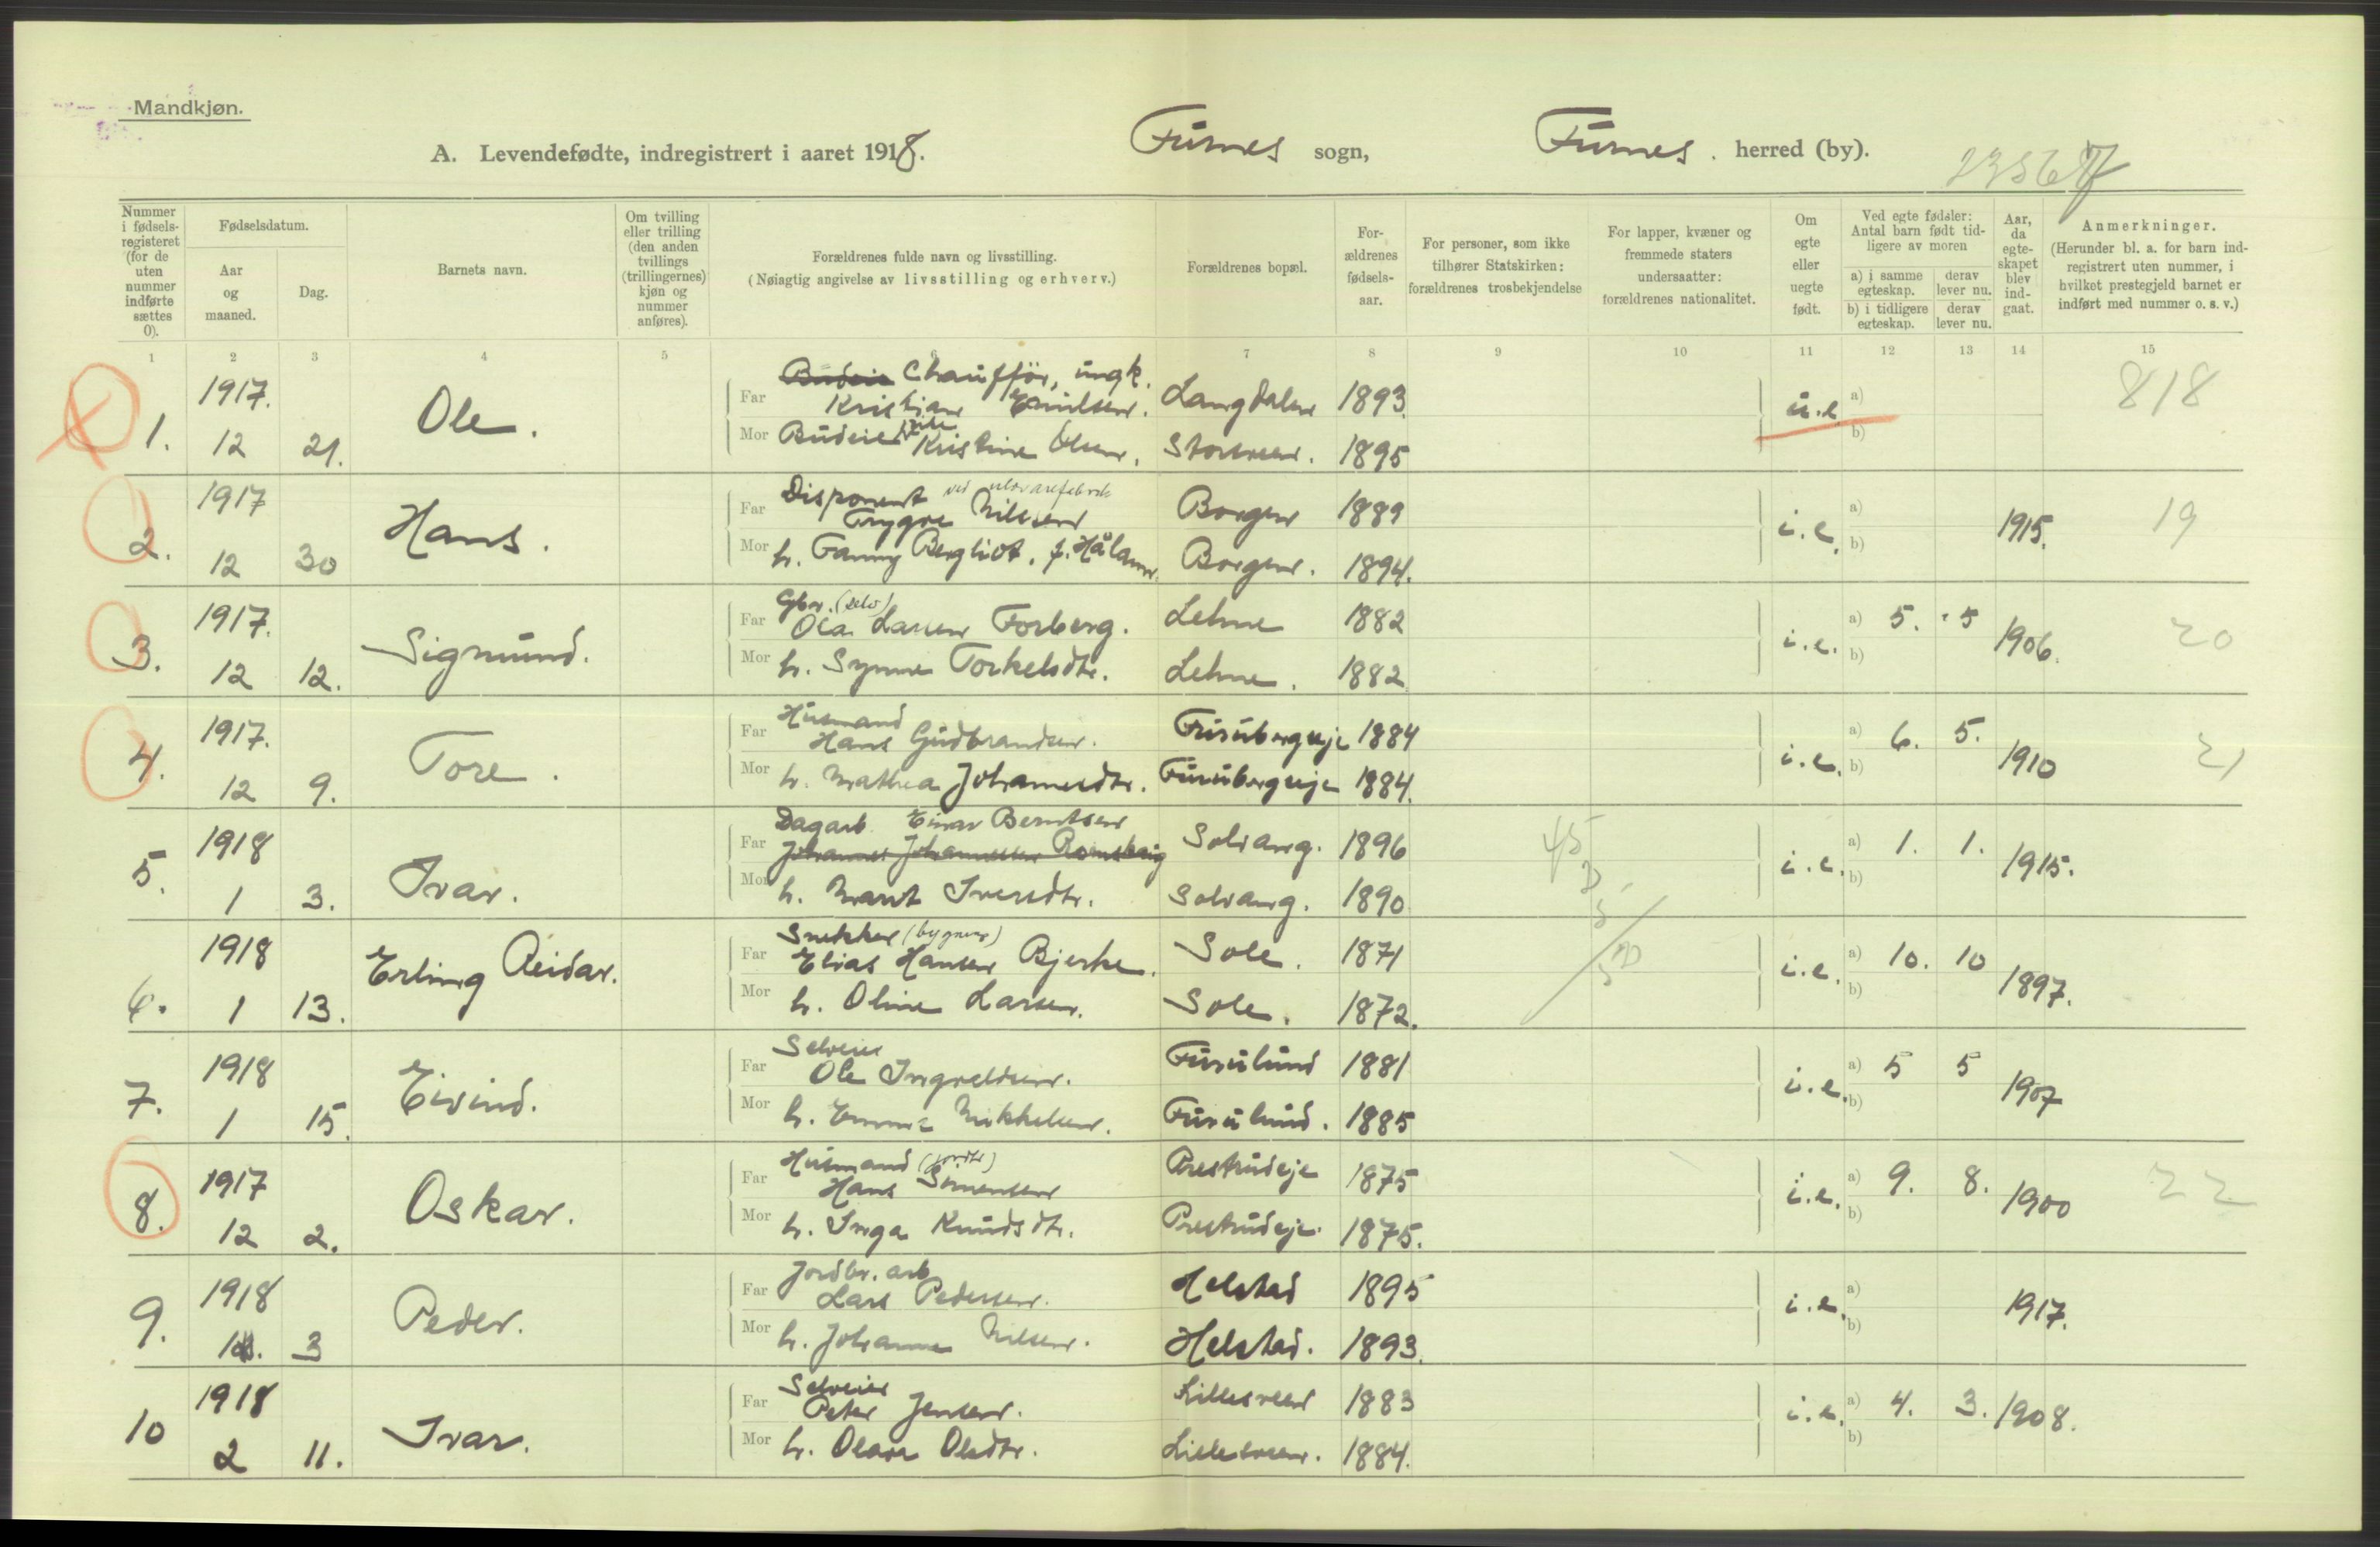 Mandkjøn.
A. Levendefødte, indregistrert i aaret 1918. Furnes sogn, Furnes. herred (by).
Nummer i fødsels-registeret (for de uten nummer indførte sættes 0).
Fødselsdatum.
Aar og maaned.
Dag.
Barnets navn.
Om tvilling eller trilling (den anden tvillings (trillingernes) kjøn og nummer anføres).
Forældrenes fulde navn og livsstilling.
(Nøiagtig angivelse av livsstilling og erhverv.)
Forældrenes bopæl.
For-ældrenes fødsels-aar.
For personer, som ikke tilhører Statskirken: forældrenes trosbekjendelse
For lapper, kvæner og fremmede staters undersaatter: forældrenes nationalitet.
Om egte eller uegte født.
Ved egte fødsler: Antal barn født tid-ligere av moren
a) i samme egteskap. derav lever nu.
b) i tidligere egteskap. derav lever nu.
Aar, da egte-skapet blev ind-gaat.
Anmerkninger.
(Herunder bl. a. for barn ind-registrert uten nummer, i hvilket prestegjeld barnet er indført med nummer o. s. v.)
1 2 3 4 5 6 7 8 9 10 11 12 13 14 15
1. 1917. 12 21. Ole.
Far Chaufför, ungk. Kristian Emilsen. Langdalen 1893.
Mor Budeie Kristine Olsen. Storveen. 1895
u.e. a) b) 818
2. 1917 12 30 Hans.
Far Disponent ved ulvarefabrik Trygve Nilsen Borgen 1889
Mor h. Fanny Bergliot, f. Hålam Borgen. 1894.
i.e. a) b) 1915. 19
3. 1917. 12 12. Sigmund.
Far Gbr. (selv) Ola Larsen Forberg. Lehne 1882
Mor h. Synne Torkelsdtr. Lehne. 1882
i.e. a) 5. 5 b) 1906. 20
4. 1917. 12 9. Tore.
Far Husmand Hans Gudbrandsen. Furubergeje 1884
Mor h. Mathea Johannesdtr. Furubergeje 1884.
i.e. a) 6. 5. b) 1910 21
5. 1918 1 3. Ivar.
Far Dagarb. Einar Berntsen Johannes Johannessen Solvang. 1896
Mor h. Marit Iversdtr. Solvang. 1890
45
i.e. a) 1. 1. b) 1915.
6. 1918 1 13. Erling Reidar.
Far Snekker (bygnin) Elias Hansen Bjerke. Sole. 1871
Mor h. Oline Larsen. Sole. 1872.
i.e. a) 10. 10 b) 1897.
7. 1918 1 15. Eivind.
Far Selveier Ole Ingvaldsen. Furulund 1881
Mor h. Emma Mikkelsen. Furulund. 1885
i.e. a) 5 5 b) 1907
8. 1917 12 2. Oskar.
Far Husmand (jordbr) Hans Simensen Prestrudeje 1875
Mor h. Inga Knudsdtr. Prestrudeje. 1875.
i.e. a) 9. 8. b) 1900 22
9. 1918 1. 3 Peder.
Far Jordbr. arb Lars Pedersen. Helstad 1895
Mor h. Johanne Nilsen. Helstad. 1893.
i.e. a) b) 1917.
10 1918 2 11. Ivar.
Far Selveier Peter Jensen. Lillesveen 1883
Mor h. Olave Olsdtr. Lillesveen. 1884.
i.e. a) 4. 3. b) 1908.